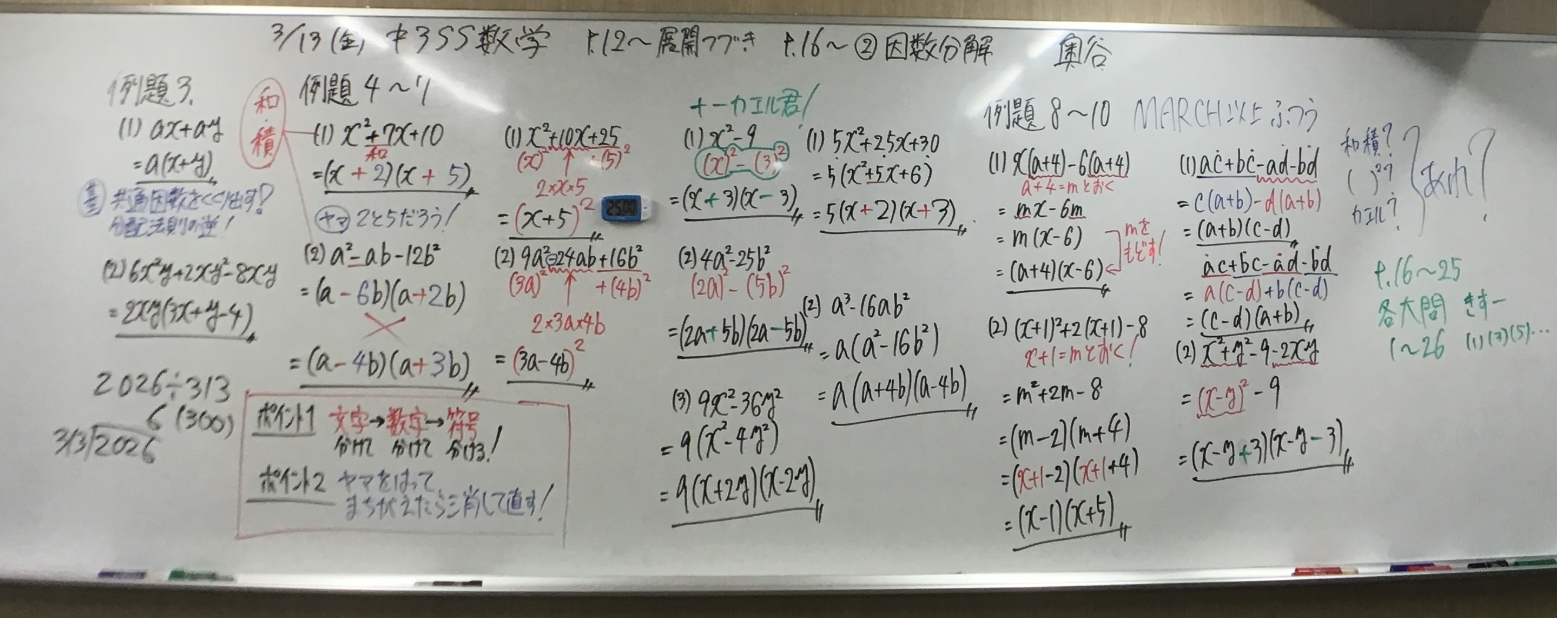 3/13(金) 中3SS数学 P.12～展開つづき P.16～②因数分解 奥谷
例題3.
(1) ax+ay
=a(x+y)
共通因数をくくり出す!
分配法則の逆!
(2) 6x²y+2xy²-8xy
=2xy(3x+y-4)
2026÷313
6(300)
313)2026
和
積
例題4～7
(1) x²+7x+10
和
=(x+2)(x+5)
ヤマ 2と5だろう!
(2) a²-ab-12b²
=(a-6b)(a+2b)
=(a-4b)(a+3b)
ポイント1 文字→数字→符号
分けて 分けて 分ける!
ポイント2 ヤマをはって、
まちがえたら三消して直す!
(1) x²+10x+25
(x)² (5)²
2×x×5
=(x+5)²
(2) 9a²-24ab+16b²
(3a)² +(4b)²
2×3a×4b
=(3a-4b)²
+-カエル君!
(1) x²-9
(x)²-(3)²
=(x+3)(x-3)
(2) 4a²-25b²
(2a)²-(5b)²
=(2a+5b)(2a-5b)
(3) 9x²-36y²
=9(x²-4y²)
=9(x+2y)(x-2y)
(1) 5x²+25x+30
=5(x²+5x+6)
=5(x+2)(x+3)
(2) a³-16ab²
=a(a²-16b²)
=a(a+4b)(a-4b)
例題8～10 MARCH以上ふつう
(1) x(a+4)-6(a+4)
a+4=mとおく
=mx-6m
=m(x-6)
mを
もどす!
=(a+4)(x-6)
(2) (x+1)²+2(x+1)-8
x+1=mとおく!
=m²+2m-8
=(m-2)(m+4)
=(x+1-2)(x+1+4)
=(x-1)(x+5)
(1) ac+bc-ad-bd
=c(a+b)-d(a+b)
=(a+b)(c-d)
ac+bc-ad-bd
=a(c-d)+b(c-d)
=(c-d)(a+b)
(2) x²+y²-9-2xy
=(x-y)²-9
=(x-y+3)(x-y-3)
和積?
( )²?
カエル?
あれ?
P.16～25
各大問 きすー
1～26 (1)(3)(5)…